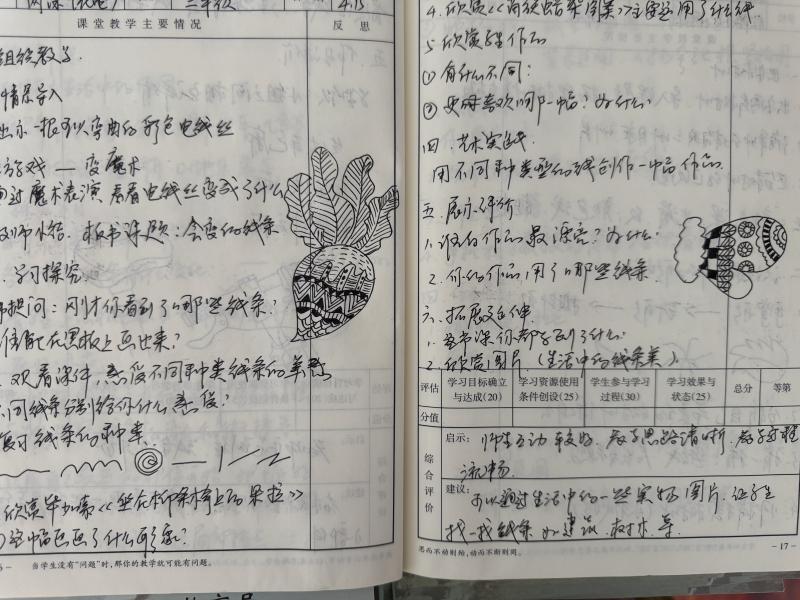 4.15
课堂教学主要情况
反思
组织教学.
情景导入
出示一根可以弯曲的彩色电线丝
游戏 — 变魔术
通过魔术表演 看看电线丝变成了什么
教师小结. 板书课题:会变的线条
学习探究
提问:刚才你看到了哪些线条?
谁能在黑板上画出来?
观看课件,感受不同种类线条的美感
不同线条分别给你什么感受?
复习线条的种类.
欣赏毕加索《坐在柳条椅上的朵拉》
这幅画画了什么形象?
当学生没有“问题”时,那你的教学就可能有问题。
5.欣赏学生作品
①有什么不同:
②更喜欢哪一幅?为什么
四. 艺术实践.
用不同种类型的线创作一幅作品.
五. 展示评价
1.谁的作品最漂亮?为什么.
2.你的作品用了哪些线条.
六. 拓展延伸
1.这节课你都学到了什么
2.欣赏图片.(生活中的线条美)
评估 学习目标确立与达成(20) 学习资源使用条件创设(25) 学生参与学习过程(30) 学习效果与状态(25) 总分 等第
分值
综合评价
启示: 师生互动较好. 教学思路清晰. 教学过程
流畅.
建议: 可以通过生活中的一些实物图片. 让学生
找一找线条 如建筑. 树木 等.
思而不动则殆,动而不断则周。
-17-